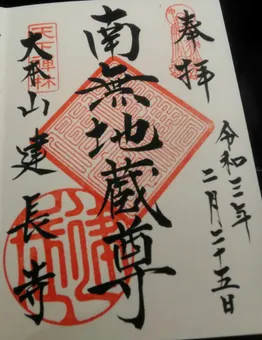 奉拝
令和三年
二月二十五日
南無地蔵尊
大本山建長寺